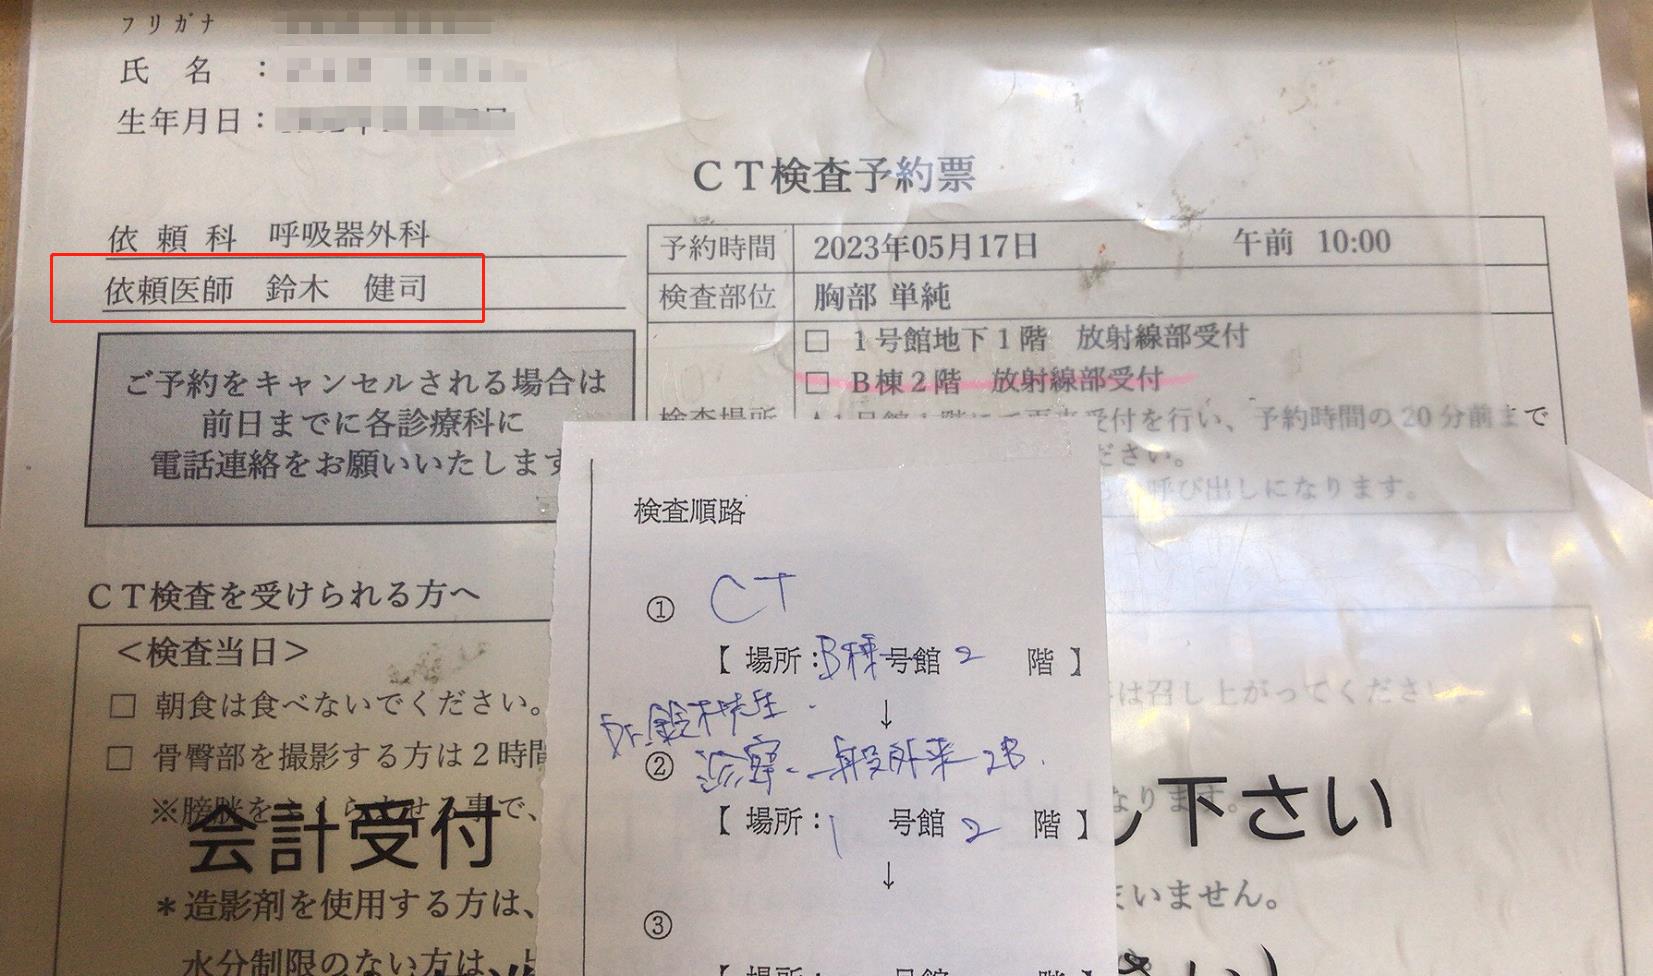 フリガナ
氏 名 :
生年月日:
CT検査予約票
依 頼 科 呼吸器外科
依頼医師 鈴木 健司
予約時間 2023年05月17日 午前 10:00
検査部位 胸部 単純
□ 1号館地下1階 放射線部受付
□ B棟2階 放射線部受付
検査場所
受付を行い、予約時間の20分前まで
ださい。
呼び出しになります。
ご予約をキャンセルされる場合は
前日までに各診療科に
電話連絡をお願いいたします
CT検査を受けられる方へ
<検査当日>
□ 朝食は食べないでください。
□ 骨臀部を撮影する方は2時間
※膀胱を
会計受付
*造影剤を使用する方は、
水分制限のない方は、
検査順路
① CT
【 場所:B棟号館 2 階 】
↓
Dr.鈴木先生
② 診察 一般外来 2B.
【 場所:1 号館 2 階 】
↓
③
【 場所: 号館 階 】
は召し上がってくださ
なります。
し下さい
まいません。
さい